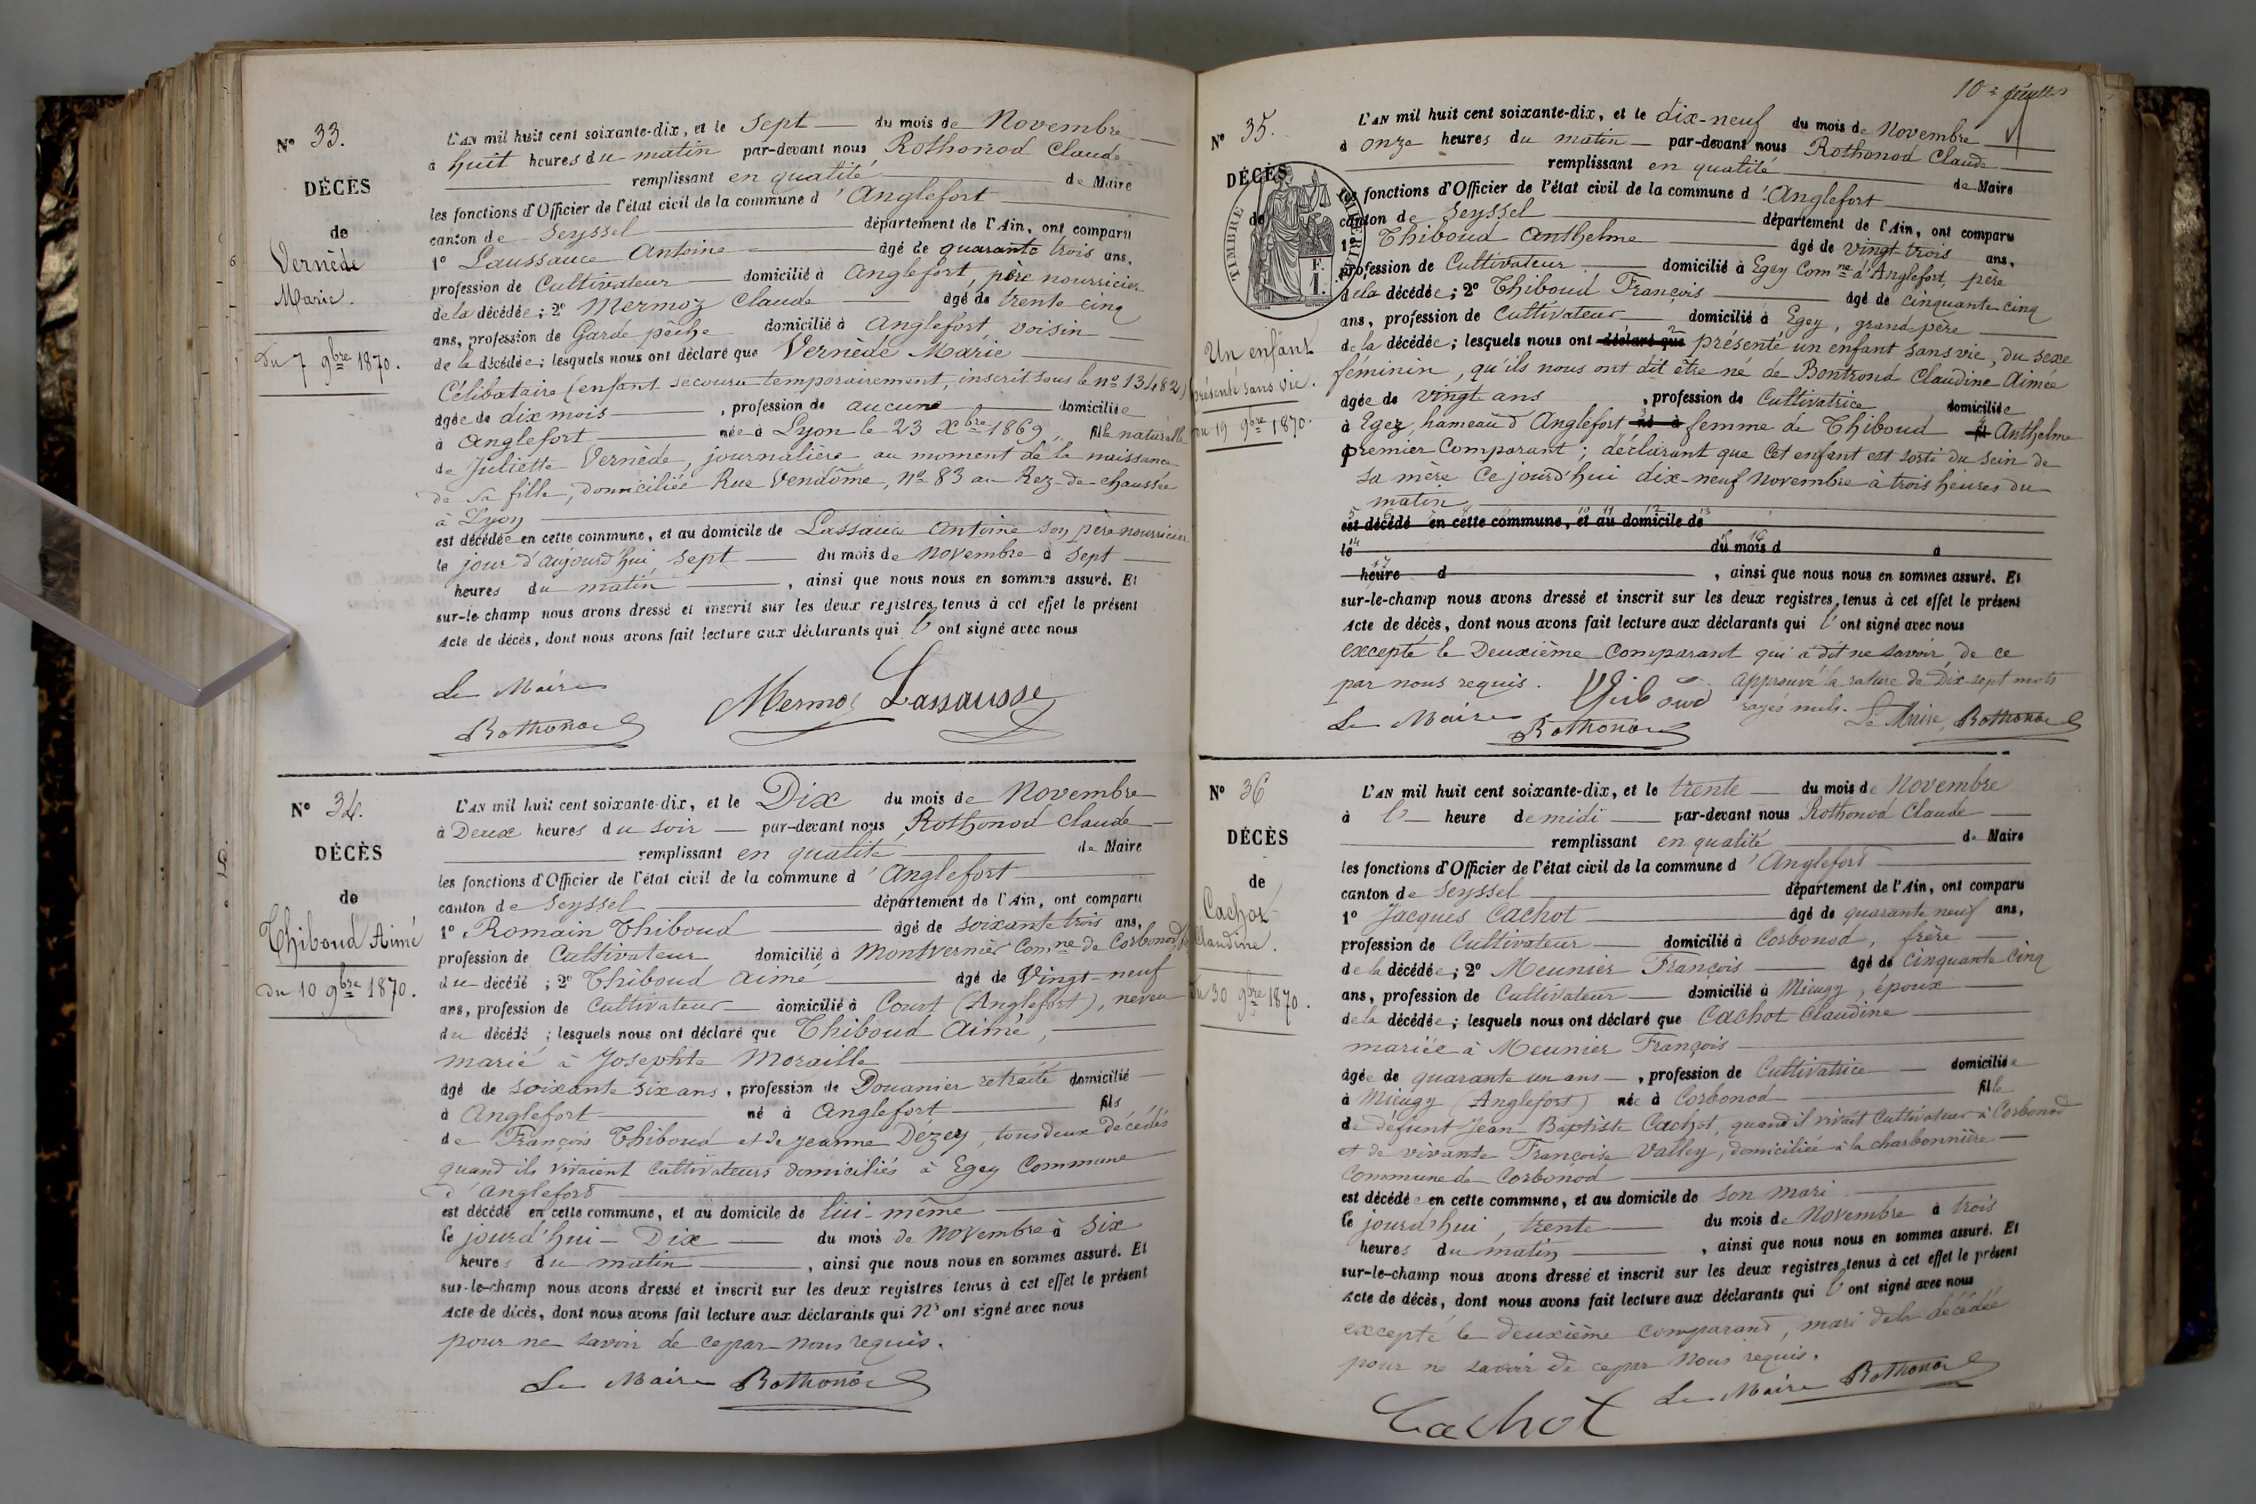 N° 33.
DÉCÈS
de
Vernède
Marie.
Du 7 9bre 1870.
L'AN mil huit cent soixante-dix, et le sept du mois de Novembre
à huit heures du matin par-devant nous Rothonod Claude
remplissant en qualité de Maire
les fonctions d'Officier de l'état civil de la commune d'Anglefort
canton de Seyssel département de l'Ain, ont comparu
1° Laussauce Antoine âgé de quarante trois ans,
profession de Cultivateur domicilié à Anglefort, père nourricier
de la décédée; 2° Mermoz Claude âgé de trente cinq
ans, profession de Garde pêche domicilié à Anglefort, voisin
de la décédée; lesquels nous ont déclaré que Vernède Marie
Célibataire (enfant secouru temporairement, inscrit sous le n° 13482)
âgée de dix mois, profession de aucune domiciliée
à Anglefort née à Lyon le 23 Xbre 1869, fille naturelle
de Juliette Vernède, journalière au moment de la naissance
de sa fille, domiciliée Rue Vendôme, n° 83 au Rez-de-chaussée
à Lyon
est décédée en cette commune, et au domicile de Lassauce Antoine son père nourricier
le jour d'aujourd'hui, sept du mois de Novembre à sept
heures du matin, ainsi que nous nous en sommes assuré. Et
sur-le-champ nous avons dressé et inscrit sur les deux registres tenus à cet effet le présent
Acte de décès, dont nous avons fait lecture aux déclarants qui l'ont signé avec nous
Le Maire
Rothonod Mermoz Lassausse
N° 34.
DÉCÈS
de
Thiboud Aimé
du 10 9bre 1870.
L'AN mil huit cent soixante-dix, et le Dix du mois de Novembre
à Deux heures du soir par-devant nous Rothonod Claude
remplissant en qualité de Maire
les fonctions d'Officier de l'état civil de la commune d'Anglefort
canton de Seyssel département de l'Ain, ont comparu
1° Romain Thiboud âgé de soixante trois ans,
profession de Cultivateur domicilié à Montvernier Comne de Corbonod
du décédé; 2° Thiboud Aimé âgé de Vingt-neuf
ans, profession de Cultivateur domicilié à Court (Anglefort), neveu
du décédé; lesquels nous ont déclaré que Thiboud Aimé,
marié à Josephte Moraille
âgé de soixante six ans, profession de Douanier retraité domicilié
à Anglefort né à Anglefort fils
de François Thiboud et de Jeanne Dézey, tous deux décédés
quand ils vivaient Cultivateurs domiciliés à Egey Commune
d'Anglefort
est décédé en cette commune, et au domicile de lui-même
le jourd'hui - Dix du mois de Novembre à six
heures du matin, ainsi que nous nous en sommes assuré. Et
sur-le-champ nous avons dressé et inscrit sur les deux registres tenus à cet effet le présent
Acte de décès, dont nous avons fait lecture aux déclarants qui n'ont signé avec nous
pour ne savoir de ce par nous requis.
Le Maire Rothonod
10e feuillet
N° 35.
DÉCÈS
de
TIMBRE
F.
1.
Un enfant
présenté sans vie.
Du 19 9bre 1870.
L'AN mil huit cent soixante-dix, et le dix-neuf du mois de Novembre
à onze heures du matin par-devant nous Rothonod Claude
remplissant en qualité de Maire
les fonctions d'Officier de l'état civil de la commune d'Anglefort
canton de Seyssel département de l'Ain, ont comparu
1° Thiboud Anthelme âgé de vingt-trois ans,
profession de Cultivateur domicilié à Egey Comne d'Anglefort, père
de la décédée; 2° Thiboud François âgé de cinquante cinq
ans, profession de Cultivateur domicilié à Egey, grand père
de la décédée; lesquels nous ont déclaré que présenté un enfant sans vie, du sexe
féminin, qu'ils nous ont dit être né de Bontrond Claudine Aimée
âgée de vingt ans, profession de Cultivatrice domiciliée
à Egey, hameau d'Anglefort né à femme de Thiboud fil Anthelme
premier Comparant; déclarant que Cet enfant est sorti du sein de
sa mère Ce jourd'hui dix-neuf Novembre à trois heures du
matin
est décédé en cette commune, et au domicile de
le du mois d à
heure d, ainsi que nous nous en sommes assuré. Et
sur-le-champ nous avons dressé et inscrit sur les deux registres tenus à cet effet le présent
Acte de décès, dont nous avons fait lecture aux déclarants qui l'ont signé avec nous
excepté le Deuxième Comparant qui a dit ne savoir, de ce
par nous requis. Thiboud Approuvé la rature de Dix-sept mots
rayés nuls. Le Maire, Rothonod
Le Maire Rothonod
N° 36
DÉCÈS
de
Cachot
Claudine.
Du 30 9bre 1870.
L'AN mil huit cent soixante-dix, et le trente du mois de Novembre
à l' heure de midi par-devant nous Rothonod Claude
remplissant en qualité de Maire
les fonctions d'Officier de l'état civil de la commune d'Anglefort
canton de Seyssel département de l'Ain, ont comparu
1° Jacques Cachot âgé de quarante neuf ans,
profession de Cultivateur domicilié à Corbonod, frère
de la décédée; 2° Meunier François âgé de cinquante cinq
ans, profession de Cultivateur domicilié à Mieugy, époux
de la décédée; lesquels nous ont déclaré que Cachot Claudine
mariée à Meunier François
âgée de quarante un ans, profession de Cultivatrice domiciliée
à Mieugy (Anglefort) née à Corbonod fille
de défunt Jean Baptiste Cachot, quand il vivait Cultivateur à Corbonod
et de vivante Françoise Valley, domiciliée à la charbonnière
Commune de Corbonod
est décédée en cette commune, et au domicile de son mari
le jourd'hui, trente du mois de Novembre à trois
heures du matin, ainsi que nous nous en sommes assuré. Et
sur-le-champ nous avons dressé et inscrit sur les deux registres tenus à cet effet le présent
Acte de décès, dont nous avons fait lecture aux déclarants qui l'ont signé avec nous
excepté le deuxième comparant, mari de la décédée
pour ne savoir de ce par Nous requis.
Cachot Le Maire Rothonod